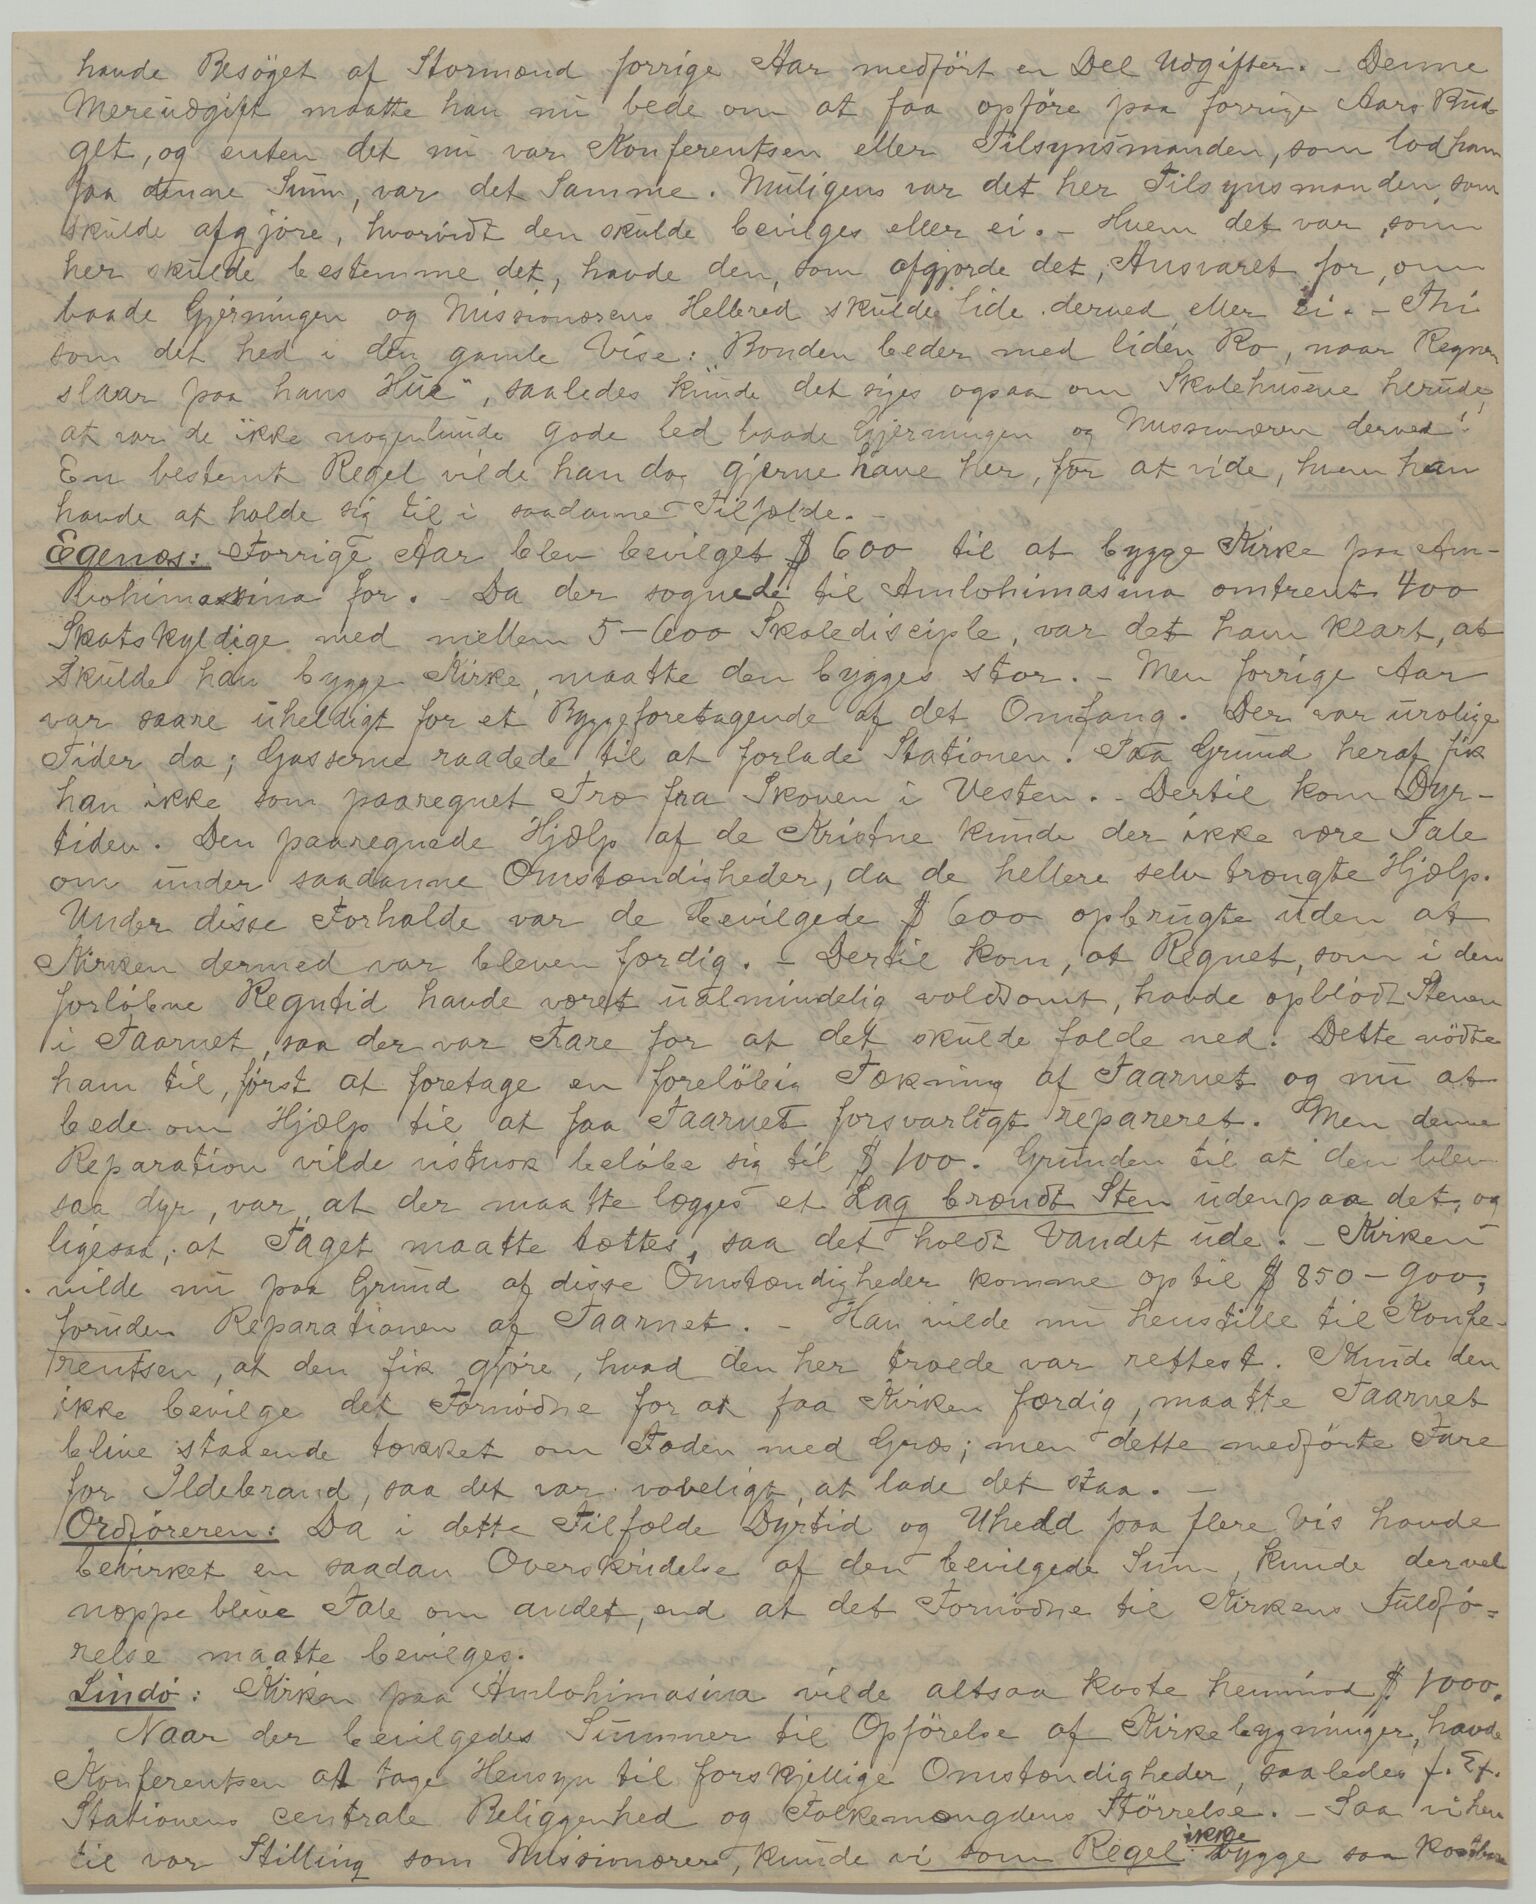 havde Besöget af Stormænd forrige Aar medfört en Del Udgifter. – Denne
Mereudgift maatte han nu bede om at faa opföre paa forrige Aars Bud-
get, og enten det nu var Konferentsen eller Tilsynsmanden, som lod ham
faa denne Sum, var det Samme. Muligens var det her Tilsynsmanden, som
skulde afgjöre, hvorvidt den skulde bevilges eller ei. – Hvem det var, som
her skulde bestemme det, havde den, som afgjorde det, Ansvaret for, om
baade Gjerningen og Missionærens Helbred skulde lide derved eller ei. – Thi
som det hed i den gamle Vise: Bonden beder med liden Ro, naar Regnen
slaar paa hans Hue", saaledes kunde det siges ogsaa om Skolehusene herude,
at var de ikke nogenlunde gode led baade Gjerningen og Missionæren derved!
En bestemt Regel vilde han dog gjerne have her, for at vide, hvem han
havde at holde sig til i saadanne Tilfælde. –
Egenæs: Forrige Aar blev bevilget $ 600 til at bygge Kirke paa Am-
bohimasina for. – Da der sognede til Ambohimasina omtrent 400
Skatskyldige med mellem 5–600 Skoledisciple, var det ham klart, at
skulde han bygge Kirke, maatte den bygges stor. – Men forrige Aar
var saare uheldigt for et Byggeforetagende af det Omfang. Der var urolige
Tider da; Gasserne raadede til at forlade Stationen. Paa Grund heraf fik
han ikke som paaregnet Træ fra Skoven i Vesten. – Dertil kom Dyr-
tiden. Den paaregnede Hjælp af de Kristne kunde der ikke være Tale
om under saadanne Omstændigheder, da de hellere selv trængte Hjælp.
Under disse Forholde var de bevilgede $ 600 opbrugte uden at
Kirken dermed var bleven færdig. – Dertil kom, at Regnet, som i den
forlöbne Regntid havde været ualmindelig voldsomt, havde opblödt Stenen
i Taarnet, saa der var Fare for at det skulde falde ned. Dette nödte
ham til, först at foretage en forelöbig Tækning af Taarnet og nu at
bede om Hjælp til at faa Taarnet forsvarligt repareret. Men denne
Reparation vilde vistnok belöbe sig til $ 100. Grunden til at den blev
saa dyr, var, at der maatte lægges et Lag brændt Sten udenpaa det, og
ligesaa, at Taget maatte tættes, saa det holdt Vandet ude. – Kirken
vilde nu paa Grund af disse Omstændigheder komme op til $ 850–900,
foruden Reparationen af Taarnet. – Han vilde nu henstille til Konfe-
rentsen, at den fik gjöre, hvad den her troede var rettest. Kunde den
ikke bevilge det Fornödne for at faa Kirken færdig, maatte Taarnet
blive staaende tækket om Foden med Græs; men dette medförte Fare
for Ildebrand, saa det var voveligt, at lade det staa. –
Ordföreren: Da i dette Tilfælde Dyrtid og Uheld paa flere Vis havde
bevirket en saadan Overskridelse af den bevilgede Sum, kunde der vel
næppe blive Tale om andet, end at det Fornödne til Kirkens Fuldfö-
relse maatte bevilges.
Lindö: Kirken paa Ambohimasina vilde altsaa koste henimod $ 1000.
Naar der bevilgedes Summer til Opförelse af Kirkebygninger, havde
Konferentsen at tage Hensyn til forskjellige Omstændigheder, saaledes f. Ex.
Stationens centrale Beliggenhed og Folkemængdens Störrelse. – Saa vi hen
til vor Stilling som Missionærer, kunde vi som Regel ikke bygge saa kostbare